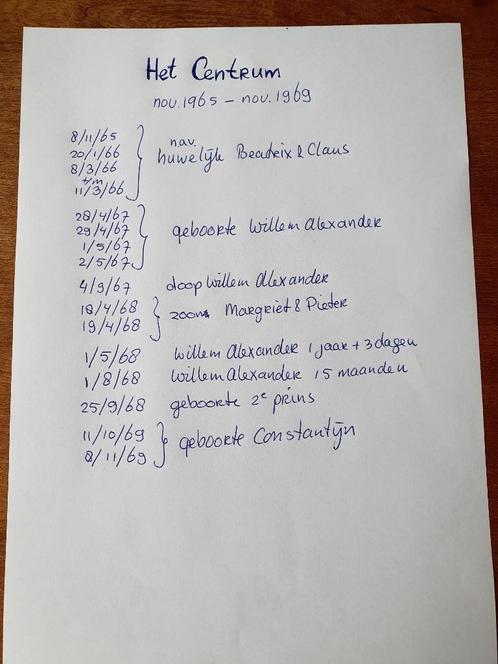 Het Centrum
nov. 1965 - nov. 1969
8/11/65
20/1/66
8/3/66
t/m
11/3/66
nav.
huwelijk Beatrix & Claus
28/4/67
29/4/67
1/5/67
2/5/67
geboorte Willem Alexander
4/9/67 doop Willem Alexander
18/4/68
19/4/68
zoon Margriet & Pieter
1/5/68 Willem Alexander 1 jaar + 3 dagen
1/8/68 Willem Alexander 15 maanden
25/9/68 geboorte 2e prins
11/10/69
8/11/69
geboorte Constantijn